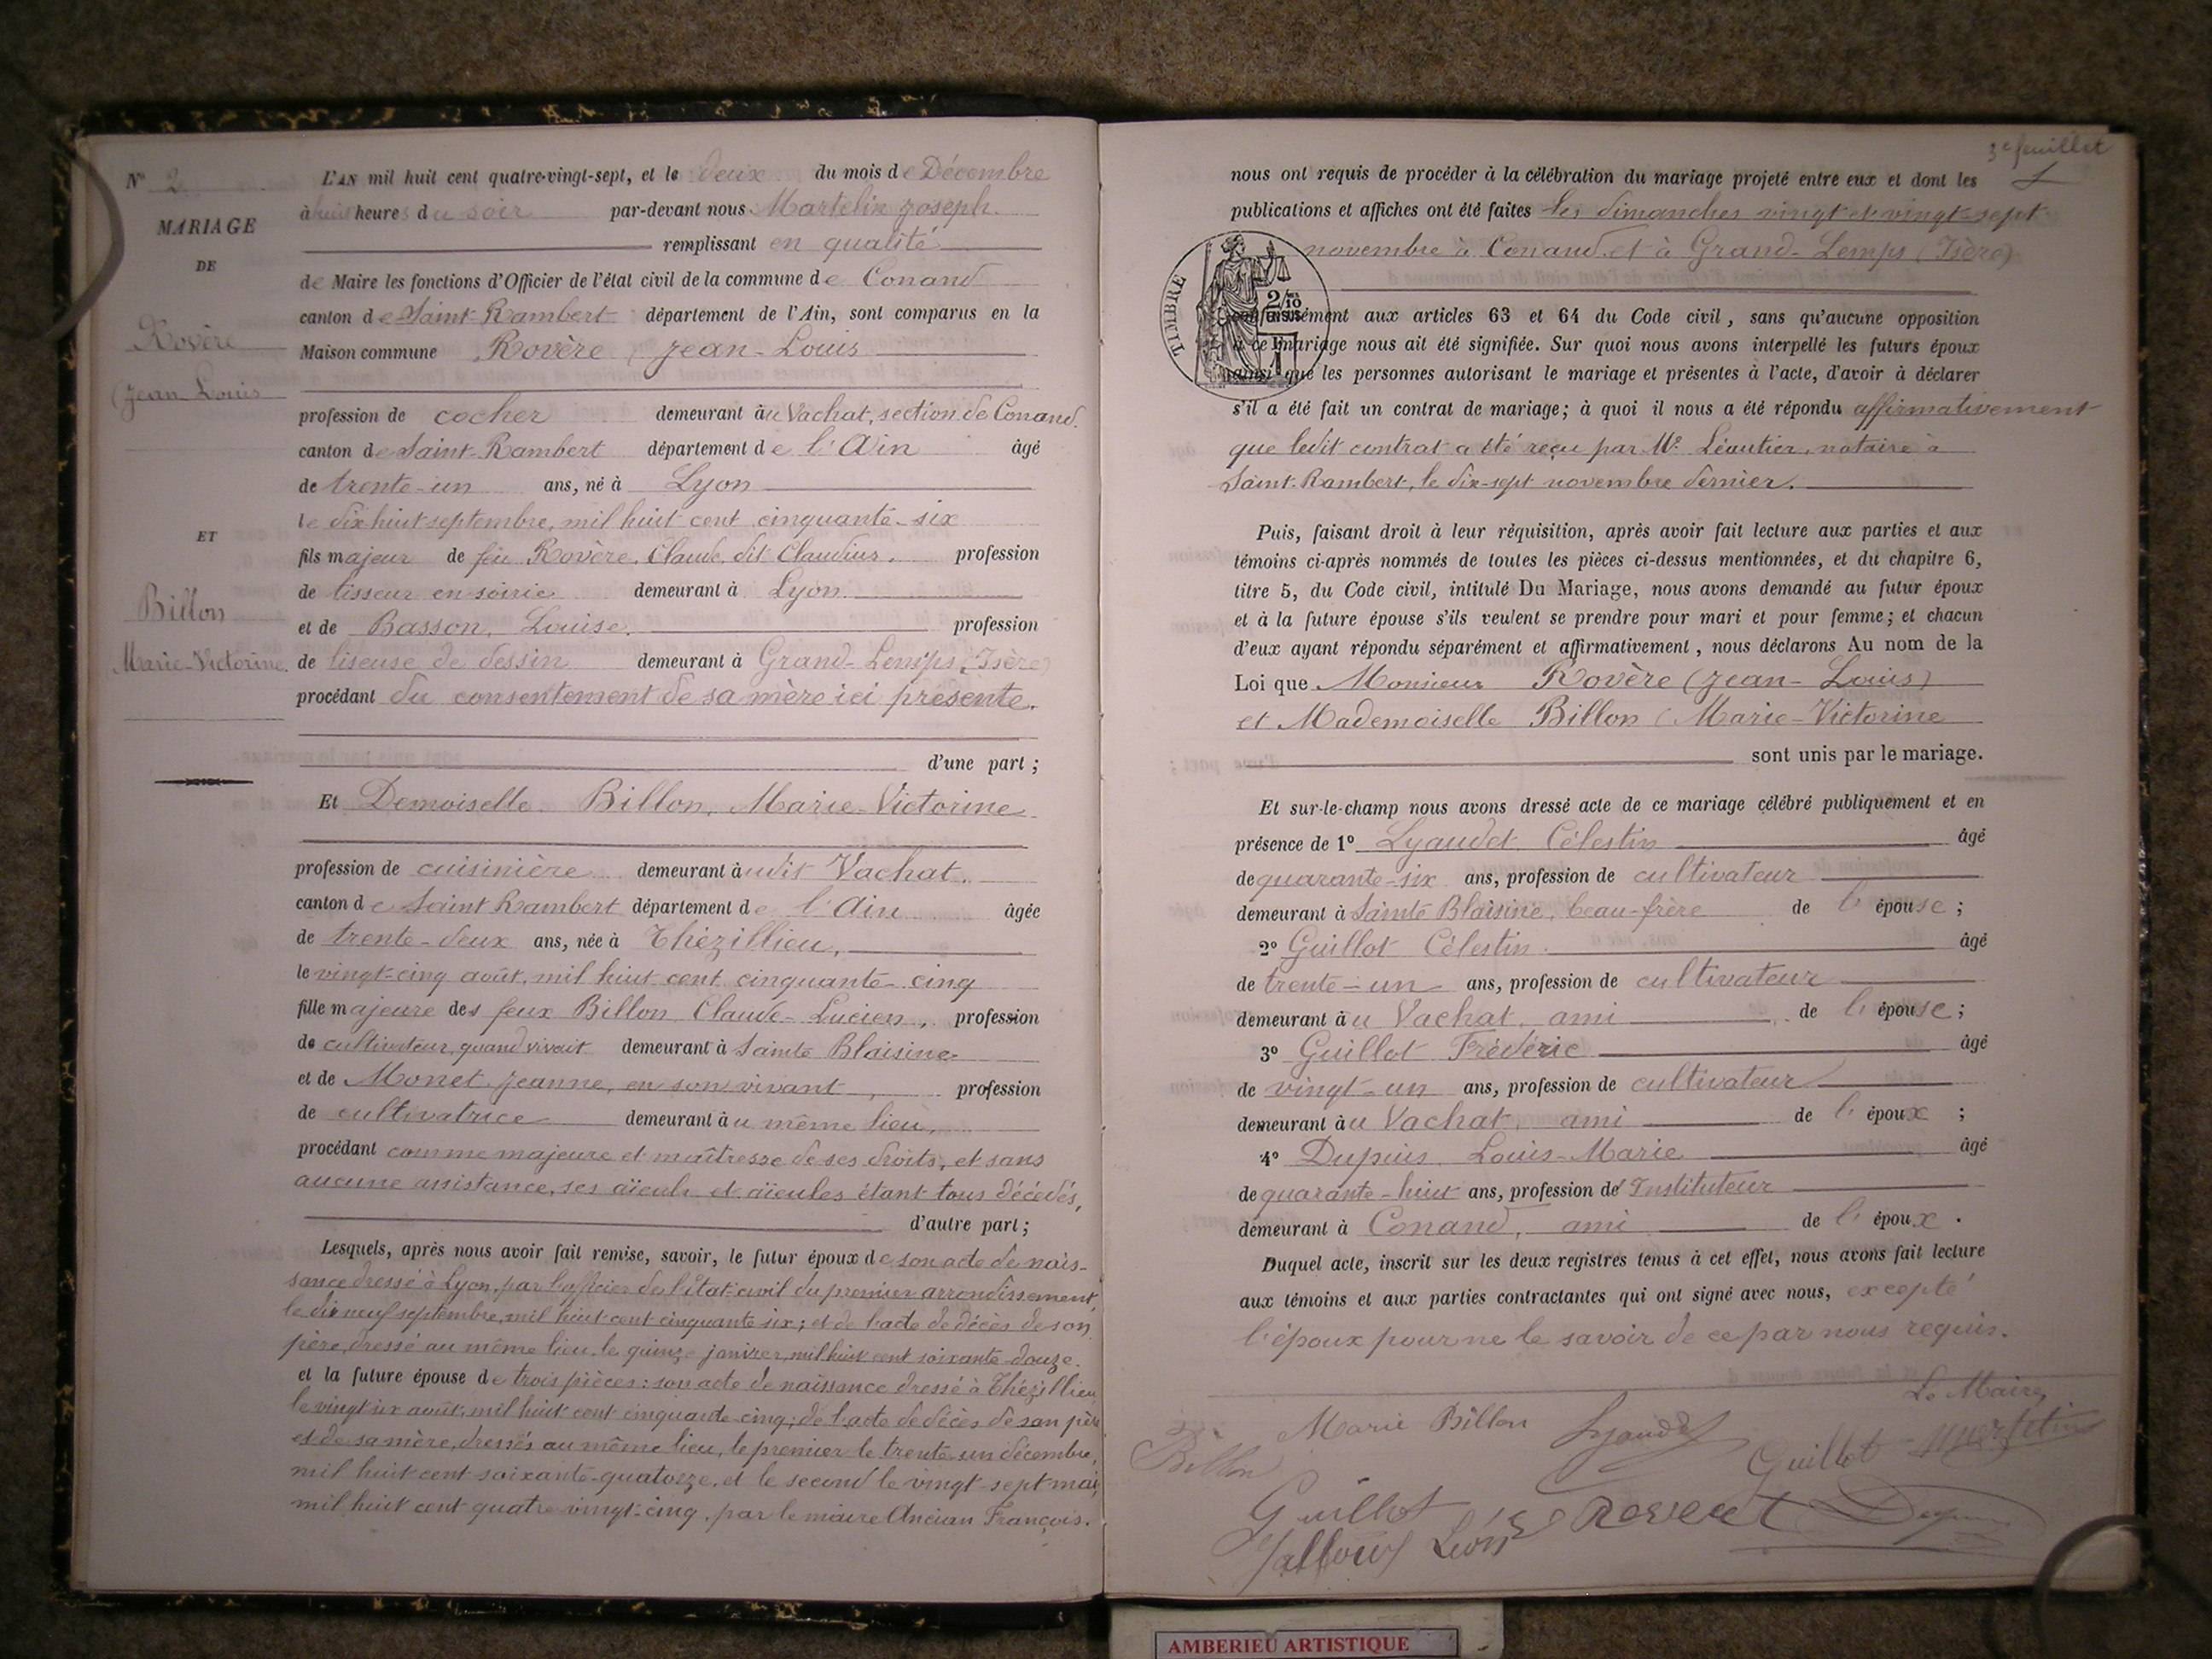 N° 2
MARIAGE
DE
Rovère
(Jean Louis
ET
Billon
Marie-Victorine.
L'AN mil huit cent quatre-vingt-sept, et le deux du mois de Décembre
à huit heures du soir par-devant nous Martelin Joseph.
remplissant en qualité
de Maire les fonctions d'Officier de l'état civil de la commune de Conand
canton de Saint-Rambert département de l'Ain, sont comparus en la
Maison commune Rovère (Jean-Louis
profession de cocher demeurant au Vachat, section de Conand.
canton de Saint-Rambert département de l'Ain âgé
de trente-un ans, né à Lyon
le dix huit septembre, mil huit cent cinquante-six
fils majeur de feu Rovère, Claude, dit Claudius, profession
de tisseur en soierie demeurant à Lyon
et de Basson, Louise. profession
de liseuse de dessin demeurant à Grand-Lemps (Isère)
procédant du consentement de sa mère ici présente.
d'une part ;
Et Demoiselle Billon, Marie-Victorine
profession de cuisinière demeurant audit Vachat.
canton de Saint Rambert département de l'Ain âgée
de trente-deux ans, née à Thézillieu,
le vingt-cinq août, mil huit cent cinquante-cinq
fille majeure des feux Billon Claude-Lucien, profession
de cultivateur, quand vivait demeurant à Sainte Blaisine
et de Monet Jeanne, en son vivant, profession
de cultivatrice demeurant au même lieu,
procédant comme majeure et maîtresse de ses droits, et sans
aucune assistance, ses aïeuls et aïeules étant tous décédés,
d'autre part ;
Lesquels, après nous avoir fait remise, savoir, le futur époux de son acte de nais-
sance dressé à Lyon, par l'officier de l'état-civil du premier arrondissement,
le dix neuf septembre, mil huit cent cinquante six ; et de l'acte de décès de son
père, dressé au même lieu, le quinze janvier, mil huit cent soixante-douze.
et la future épouse de trois pièces : son acte de naissance dressé à Thézillieu
le vingt six août, mil huit cent cinquante-cinq ; de l'acte de décès de son père
et de sa mère, dressés au même lieu, le premier le trente-un décembre,
mil huit cent soixante-quatorze, et le second le vingt-sept mai,
mil huit cent quatre-vingt-cinq, par le maire Ancian François.
3e feuillet
nous ont requis de procéder à la célébration du mariage projeté entre eux et dont les
publications et affiches ont été faites les dimanches vingt et vingt-sept
novembre à Conand et à Grand-Lemps (Isère)
TIMBRE
2/10
EN SUS
conformément aux articles 63 et 64 du Code civil, sans qu'aucune opposition
à ce mariage nous ait été signifiée. Sur quoi nous avons interpellé les futurs époux
ainsi que les personnes autorisant le mariage et présentes à l'acte, d'avoir à déclarer
s'il a été fait un contrat de mariage ; à quoi il nous a été répondu affirmativement
que ledit contrat a été reçu par Me Léautier, notaire à
Saint-Rambert, le dix-sept novembre dernier.
Puis, faisant droit à leur réquisition, après avoir fait lecture aux parties et aux
témoins ci-après nommés de toutes les pièces ci-dessus mentionnées, et du chapitre 6,
titre 5, du Code civil, intitulé Du Mariage, nous avons demandé au futur époux
et à la future épouse s'ils veulent se prendre pour mari et pour femme ; et chacun
d'eux ayant répondu séparément et affirmativement, nous déclarons Au nom de la
Loi que Monsieur Rovère (Jean-Louis)
et Mademoiselle Billon (Marie-Victorine
sont unis par le mariage.
Et sur-le-champ nous avons dressé acte de ce mariage célébré publiquement et en
présence de 1° Lyaudet Célestin âgé
de quarante-six ans, profession de cultivateur
demeurant à Sainte Blaisine, beau-frère de l'épouse ;
2° Guillot Célestin âgé
de trente-un ans, profession de cultivateur
demeurant au Vachat, ami de l'épouse ;
3° Guillot Frédéric âgé
de vingt-un ans, profession de cultivateur
demeurant au Vachat, ami de l'époux ;
4° Dupuis Louis-Marie âgé
de quarante-huit ans, profession de Instituteur
demeurant à Conand, ami de l'époux.
Duquel acte, inscrit sur les deux registres tenus à cet effet, nous avons fait lecture
aux témoins et aux parties contractantes qui ont signé avec nous, excepté
l'époux pour ne le savoir de ce par nous requis.
Le Maire,
Marie Billon Lyaudet
Billon Guillot Martelin
Guillot
Léon
AMBERIEU ARTISTIQUE